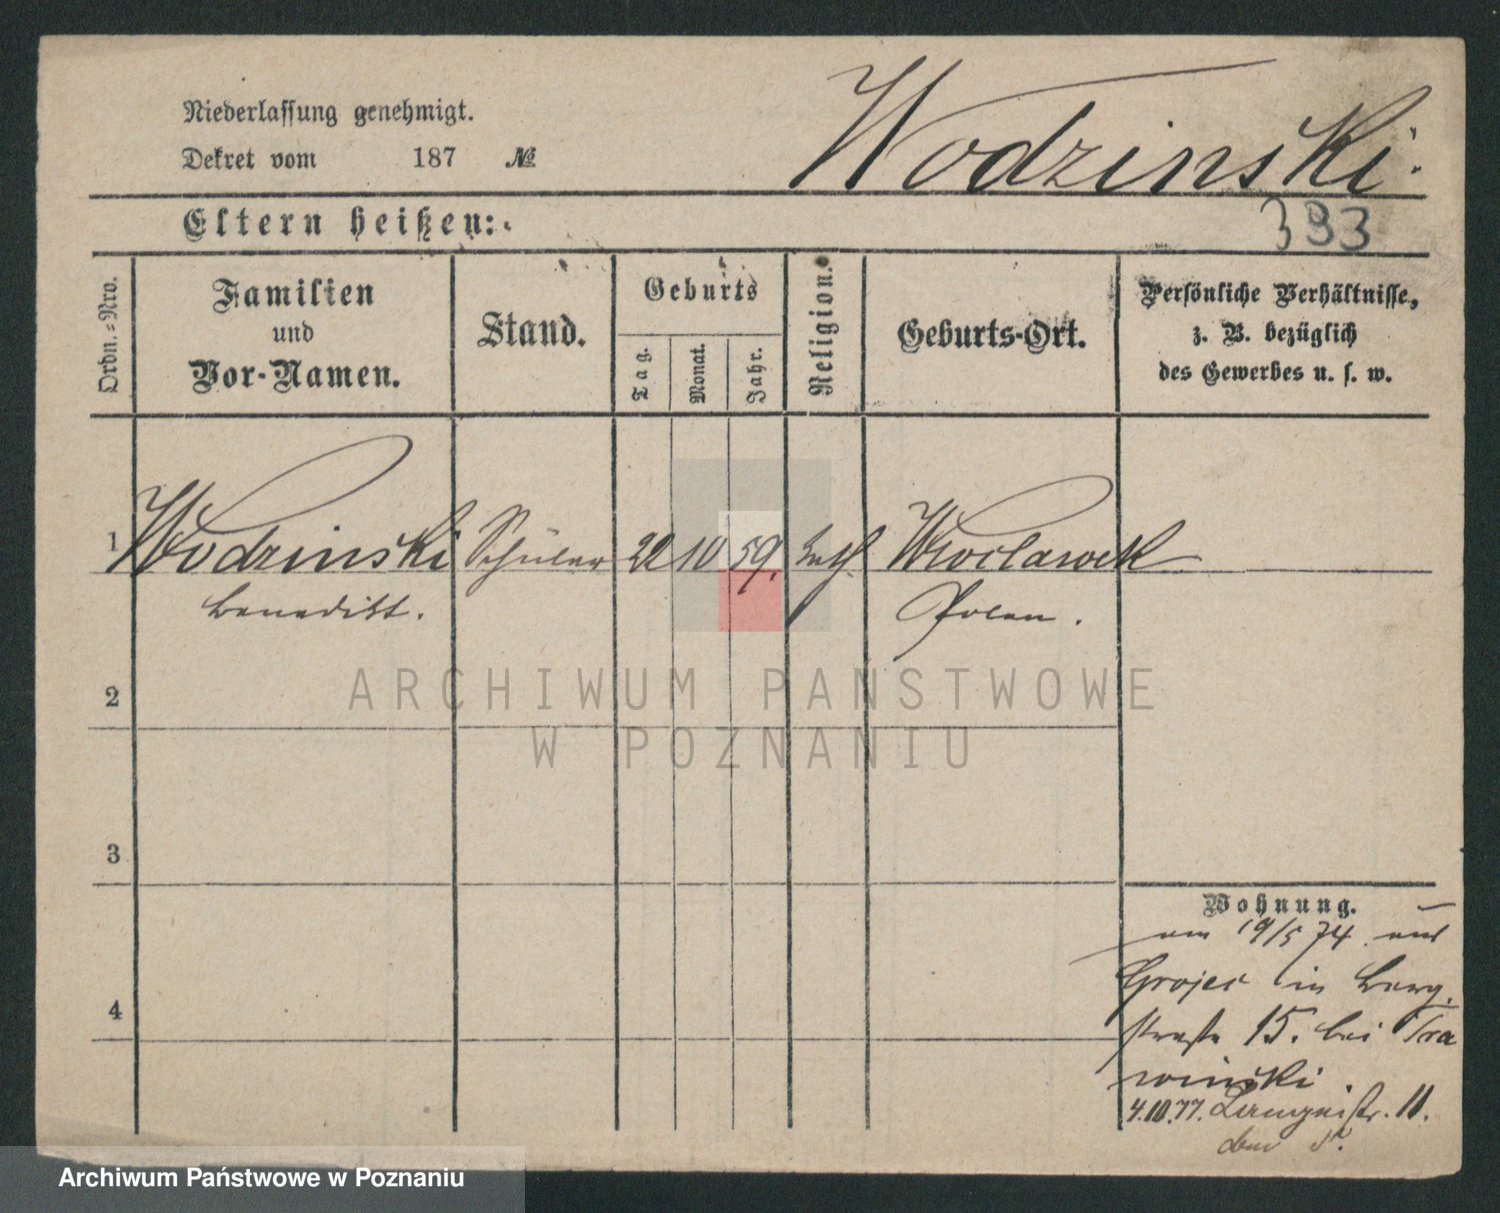 Wodzinski.
Niederlassung genehmigt.
Dekret vom 187 №
393
Eltern heißen:
Ordn.=Nro.
Familien
und
Vor-Namen.
Stand.
Geburts
Tag.
Monat.
Jahr.
Religion.
Geburts-Ort.
Persönliche Verhältnisse,
z. B. bezüglich
des Gewerbes u. s. w.
1 Wodzinski Schüler 22 10 59. kath Wroclawek
Benedikt. Polen.
2
3
4
Wohnung.
am 19/5 74 aus
Grojec in Berg
straße 15. bei Tra
winski.
4.10.77. str. 11.
ARCHIWUM PAŃSTWOWE
W POZNANIU
Archiwum Państwowe w Poznaniu